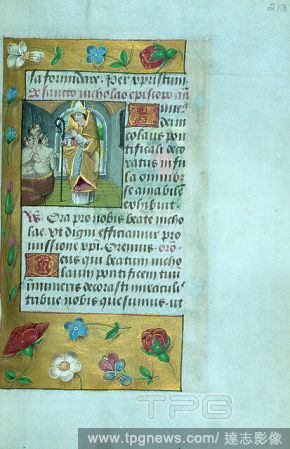 213
sa formidare. Per xpristum
De sancto nicholao episcopo añ
colaus pon
tificali deco
ratus in fu
la omnibꝰ
se amabile
exhybuit.
Ora pro nobis beate nicho
lae. Vt digni efficiamur pro
missione xpi. Oremus. oro.
Deus qui beatum nicho
laum pontificem tuū
innumeris decorasti miracul
tribue nobis quesumus. ut
TPG
www.tpgnews.com/ 達志影像